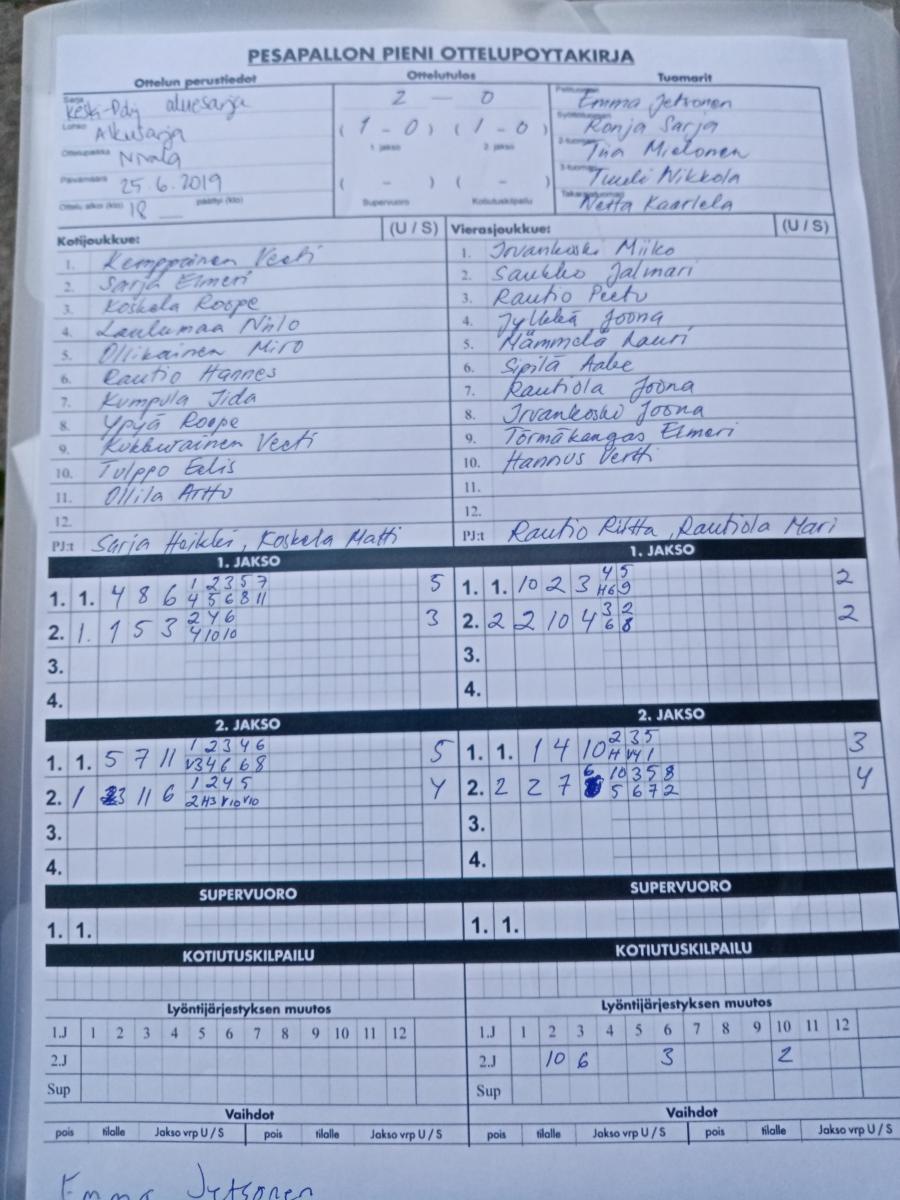 PESAPALLON PIENI OTTELUPOYTAKIRJA
Ottelun perustiedot
Ottelutulos
Tuomarit
Sarja Keski-Pohj aluesarja
Lohko Alkusarja
Ottelupaikka Nivala
Päivämäärä 25.6.2019
Ottelu alkoi (klo) 18 päättyi (klo)
2 - 0
(1-0) (1-0)
1. jakso 2. jakso
( - ) ( - )
Supervuoro Kotiutuskilpailu
Emma Jetsonen
Ronja Sarja
2-tuomari Tiia Mielonen
3-tuomari Tuuli Nikkola
Takarajatuomari Netta Kaarlela
Kotijoukkue: (U / S)
1. Kemppainen Veeti
2. Sarja Elmeri
3. Koskela Roope
4. Laulumaa Niilo
5. Ollikainen Miro
6. Rautio Hannes
7. Kumpula Iida
8. Ypyä Roope
9. Kukkurainen Veeti
10. Tulppo Eelis
11. Ollila Arttu
12.
PJ:t Sarja Heikki, Koskela Matti
Vierasjoukkue: (U / S)
1. Irvankoski Miiko
2. Saukko Jalmari
3. Rautio Peetu
4. Jylkkä Joona
5. Hämmelä Lauri
6. Sipilä Aake
7. Rautiola Joona
8. Irvankoski Joona
9. Törmäkangas Elmeri
10. Hannus Vertti
11.
12.
PJ:t Rautio Riitta, Rautiola Mari
1. JAKSO
1. 1. 4 8 6 1 2 3 5 7 5
4 5 6 8 11
2. 1. 1 5 3 2 4 6 3
4 10 10
3.
4.
1. JAKSO
1. 1. 10 2 3 4 5 2
H6 9
2. 2 2 10 4 3 2 2
6 8
3.
4.
2. JAKSO
1. 1. 5 7 11 1 2 3 4 6 5
V3 4 6 6 8
2. 1 3 11 6 1 2 4 5 4
2 H3 V10 V10
3.
4.
2. JAKSO
1. 1. 1 4 10 2 3 5 3
H V4 1
2. 2 2 7 6 10 3 5 8 4
5 6 7 2
3.
4.
SUPERVUORO
1. 1.
SUPERVUORO
1. 1.
KOTIUTUSKILPAILU
KOTIUTUSKILPAILU
Lyöntijärjestyksen muutos
1.J 1 2 3 4 5 6 7 8 9 10 11 12
2.J
Sup
Lyöntijärjestyksen muutos
1.J 1 2 3 4 5 6 7 8 9 10 11 12
2.J 10 6 3 2
Sup
Vaihdot
pois tilalle Jakso vrp U / S pois tilalle Jakso vrp U / S
Vaihdot
pois tilalle Jakso vrp U / S pois tilalle Jakso vrp U / S
Emma Jytsonen